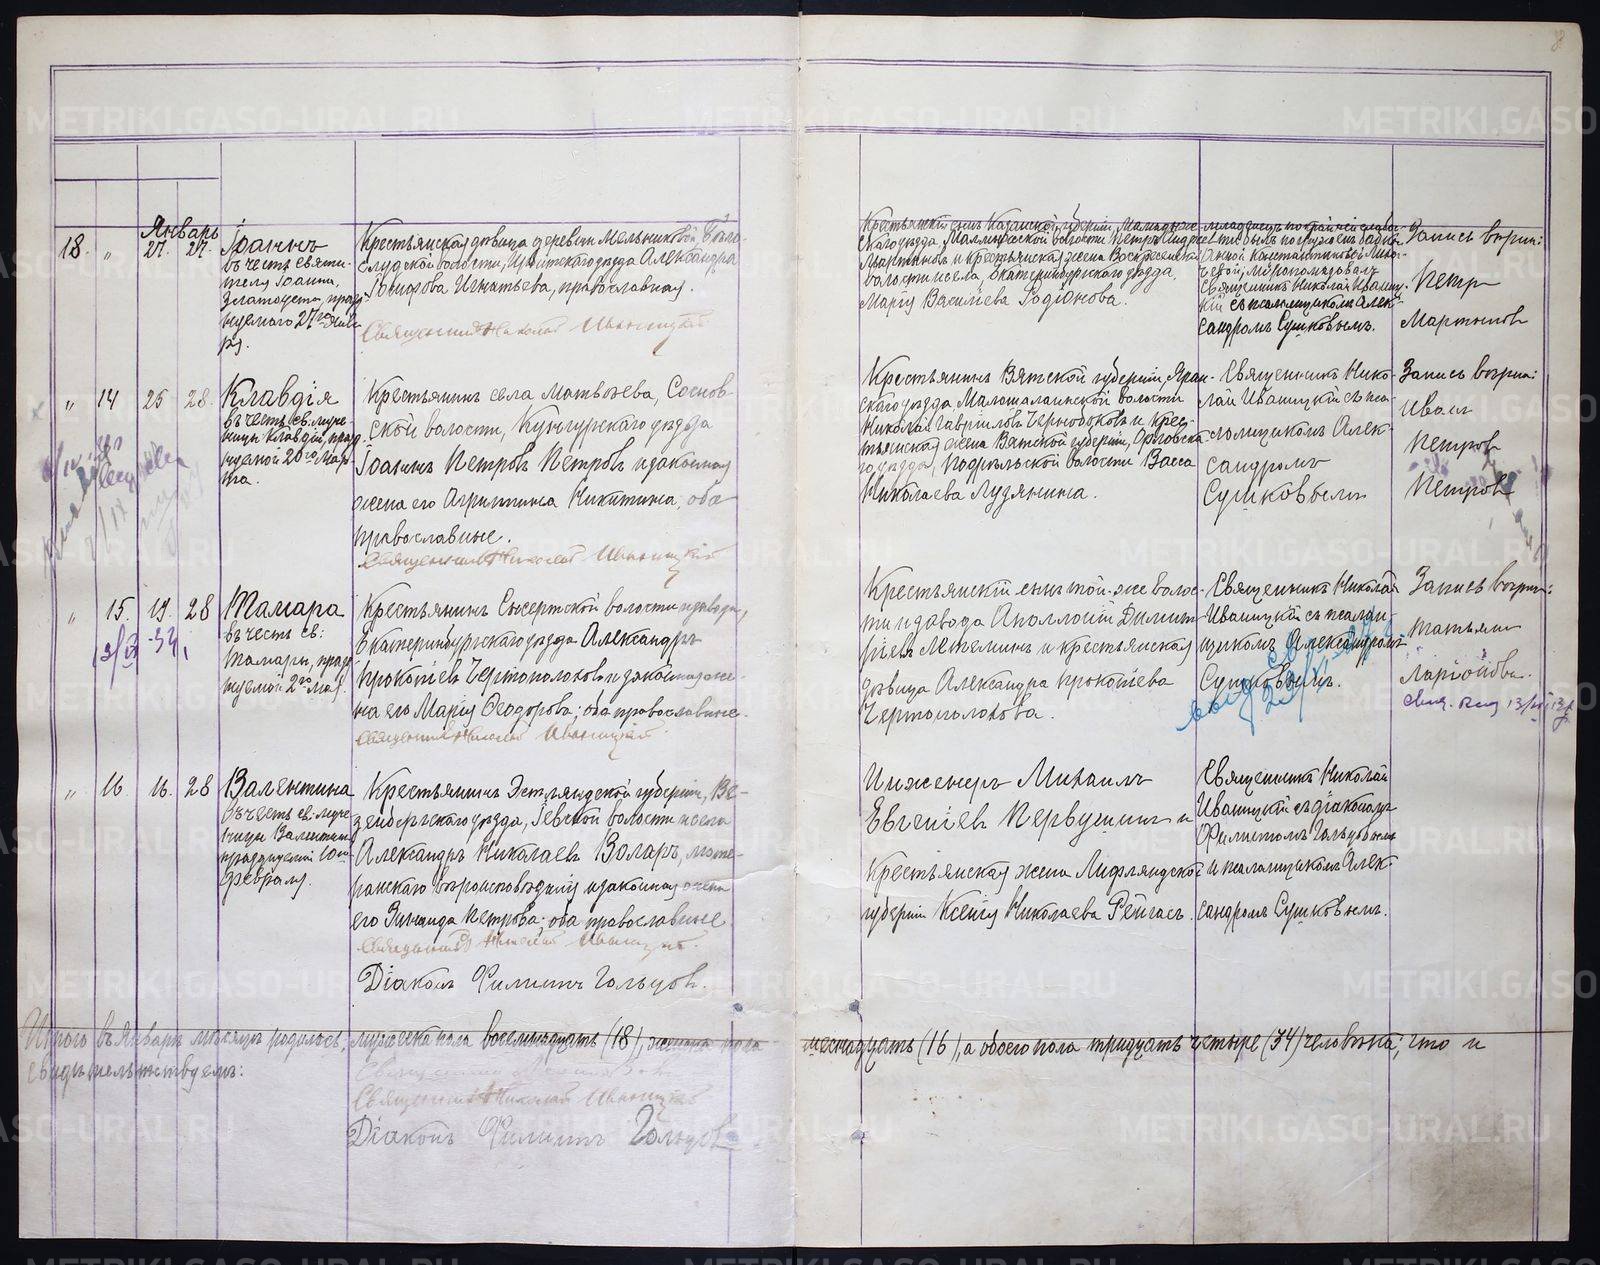 Январь
18. „ 27. 27.
Іоаннъ
въ честь святи-
теля Іоанна
Златоуста, празд-
нуемаго 27го Янва-
ря.
Крестьянская дѣвица деревни Мельниковой,
слудской волости, уѣзда Александра
Іосифова Игнатьева, православная.
Священникъ Николай Иваницкій
Крестьянскій сынъ Казанской губерніи,
скаго уѣзда, волости Петръ
Мартыновъ и крестьянская жена Воскресенской
волости и села, Екатеринбургскаго уѣзда,
Марія Васильева Родіонова.
младенецъ по крайней слабо-
сти былъ погруженъ бабкой
Анной Константиновой
муропомазывалъ
Священникъ Николай Иваниц-
кій съ псаломщикомъ Алек-
сандромъ Сушковымъ.
Запись вѣрна:
Петръ
Мартыновъ
„ 14 25 28
Клавдія
въ честь св. муче-
ницы Клавдіи, празд-
нуемой 20го Мар-
та.
Крестьянинъ села Матвѣева, Соснов-
ской волости, Кунгурскаго уѣзда
Іоаннъ Петровъ Петровъ и законная
жена его Агриппина Никитина, оба
православные.
Священникъ Николай Иваницкій
Крестьянинъ Вятской губерніи, Яран-
скаго уѣзда, волости
Николай Гавріиловъ Чернобоковъ и крес-
тьянская жена Вятской губерніи, Орловска-
го уѣзда, Подрѣльской волости Васса
Николаева Лузянина.
Священникъ Нико-
лай Иваницкій съ пса-
ломщикомъ Алек-
сандромъ
Сушковымъ
Запись вѣрна:
Иванъ
Петровъ
Петровъ
„ 15. 19. 28
Тамара
въ честь св:
Тамары, празд-
нуемой 2го мая.
Крестьянинъ Сысертской волости и завода,
Екатеринбургскаго уѣзда Александръ
Прокопіевъ Чертополоховъ и законная же-
на его Марія Ѳеодорова; оба православные.
Священникъ Николай Иваницкій.
Крестьянскій сынъ той-же волос-
ти и завода Аполлоній Димит-
ріевъ Летеминъ и крестьянская
дѣвица Александра Прокопіева
Чертополохова.
Священникъ Николай
Иваницкій съ псалом-
щикомъ Александромъ
Сушковымъ.
Запись вѣрна:
Татьяна
„ 16. 16. 28
Валентина
въ честь св. муче-
ницы Валентины
празднуемой 10го
Февраля.
Крестьянинъ Эстляндской губерніи, Ве-
зенбергскаго уѣзда, волости и села
Александръ Николаевъ Воларъ, люте-
ранскаго вѣроисповѣданія и законная жена
его Зинаида Петрова; оба православные.
Священникъ Николай Иваницкій.
Діаконъ Филиппъ Гольцовъ.
Инженеръ Михаилъ
Евгеніевъ Первушинъ и
Крестьянская жена Лифляндской
губерніи Ксенія Николаева Рейнгасъ.
Священникъ Николай
Иваницкій съ діакономъ
Филиппомъ Гольцовымъ
и псаломщикомъ Алек-
сандромъ Сушковымъ.
Итого въ Январѣ мѣсяцѣ родилось: мужеска пола восемнадцать (18), женска пола шестнадцать (16), а обоего пола тридцать четыре (34) человѣка; что и
свидѣтельствуемъ:
Священникъ Николай Иваницкій
Діаконъ Филиппъ Гольцовъ